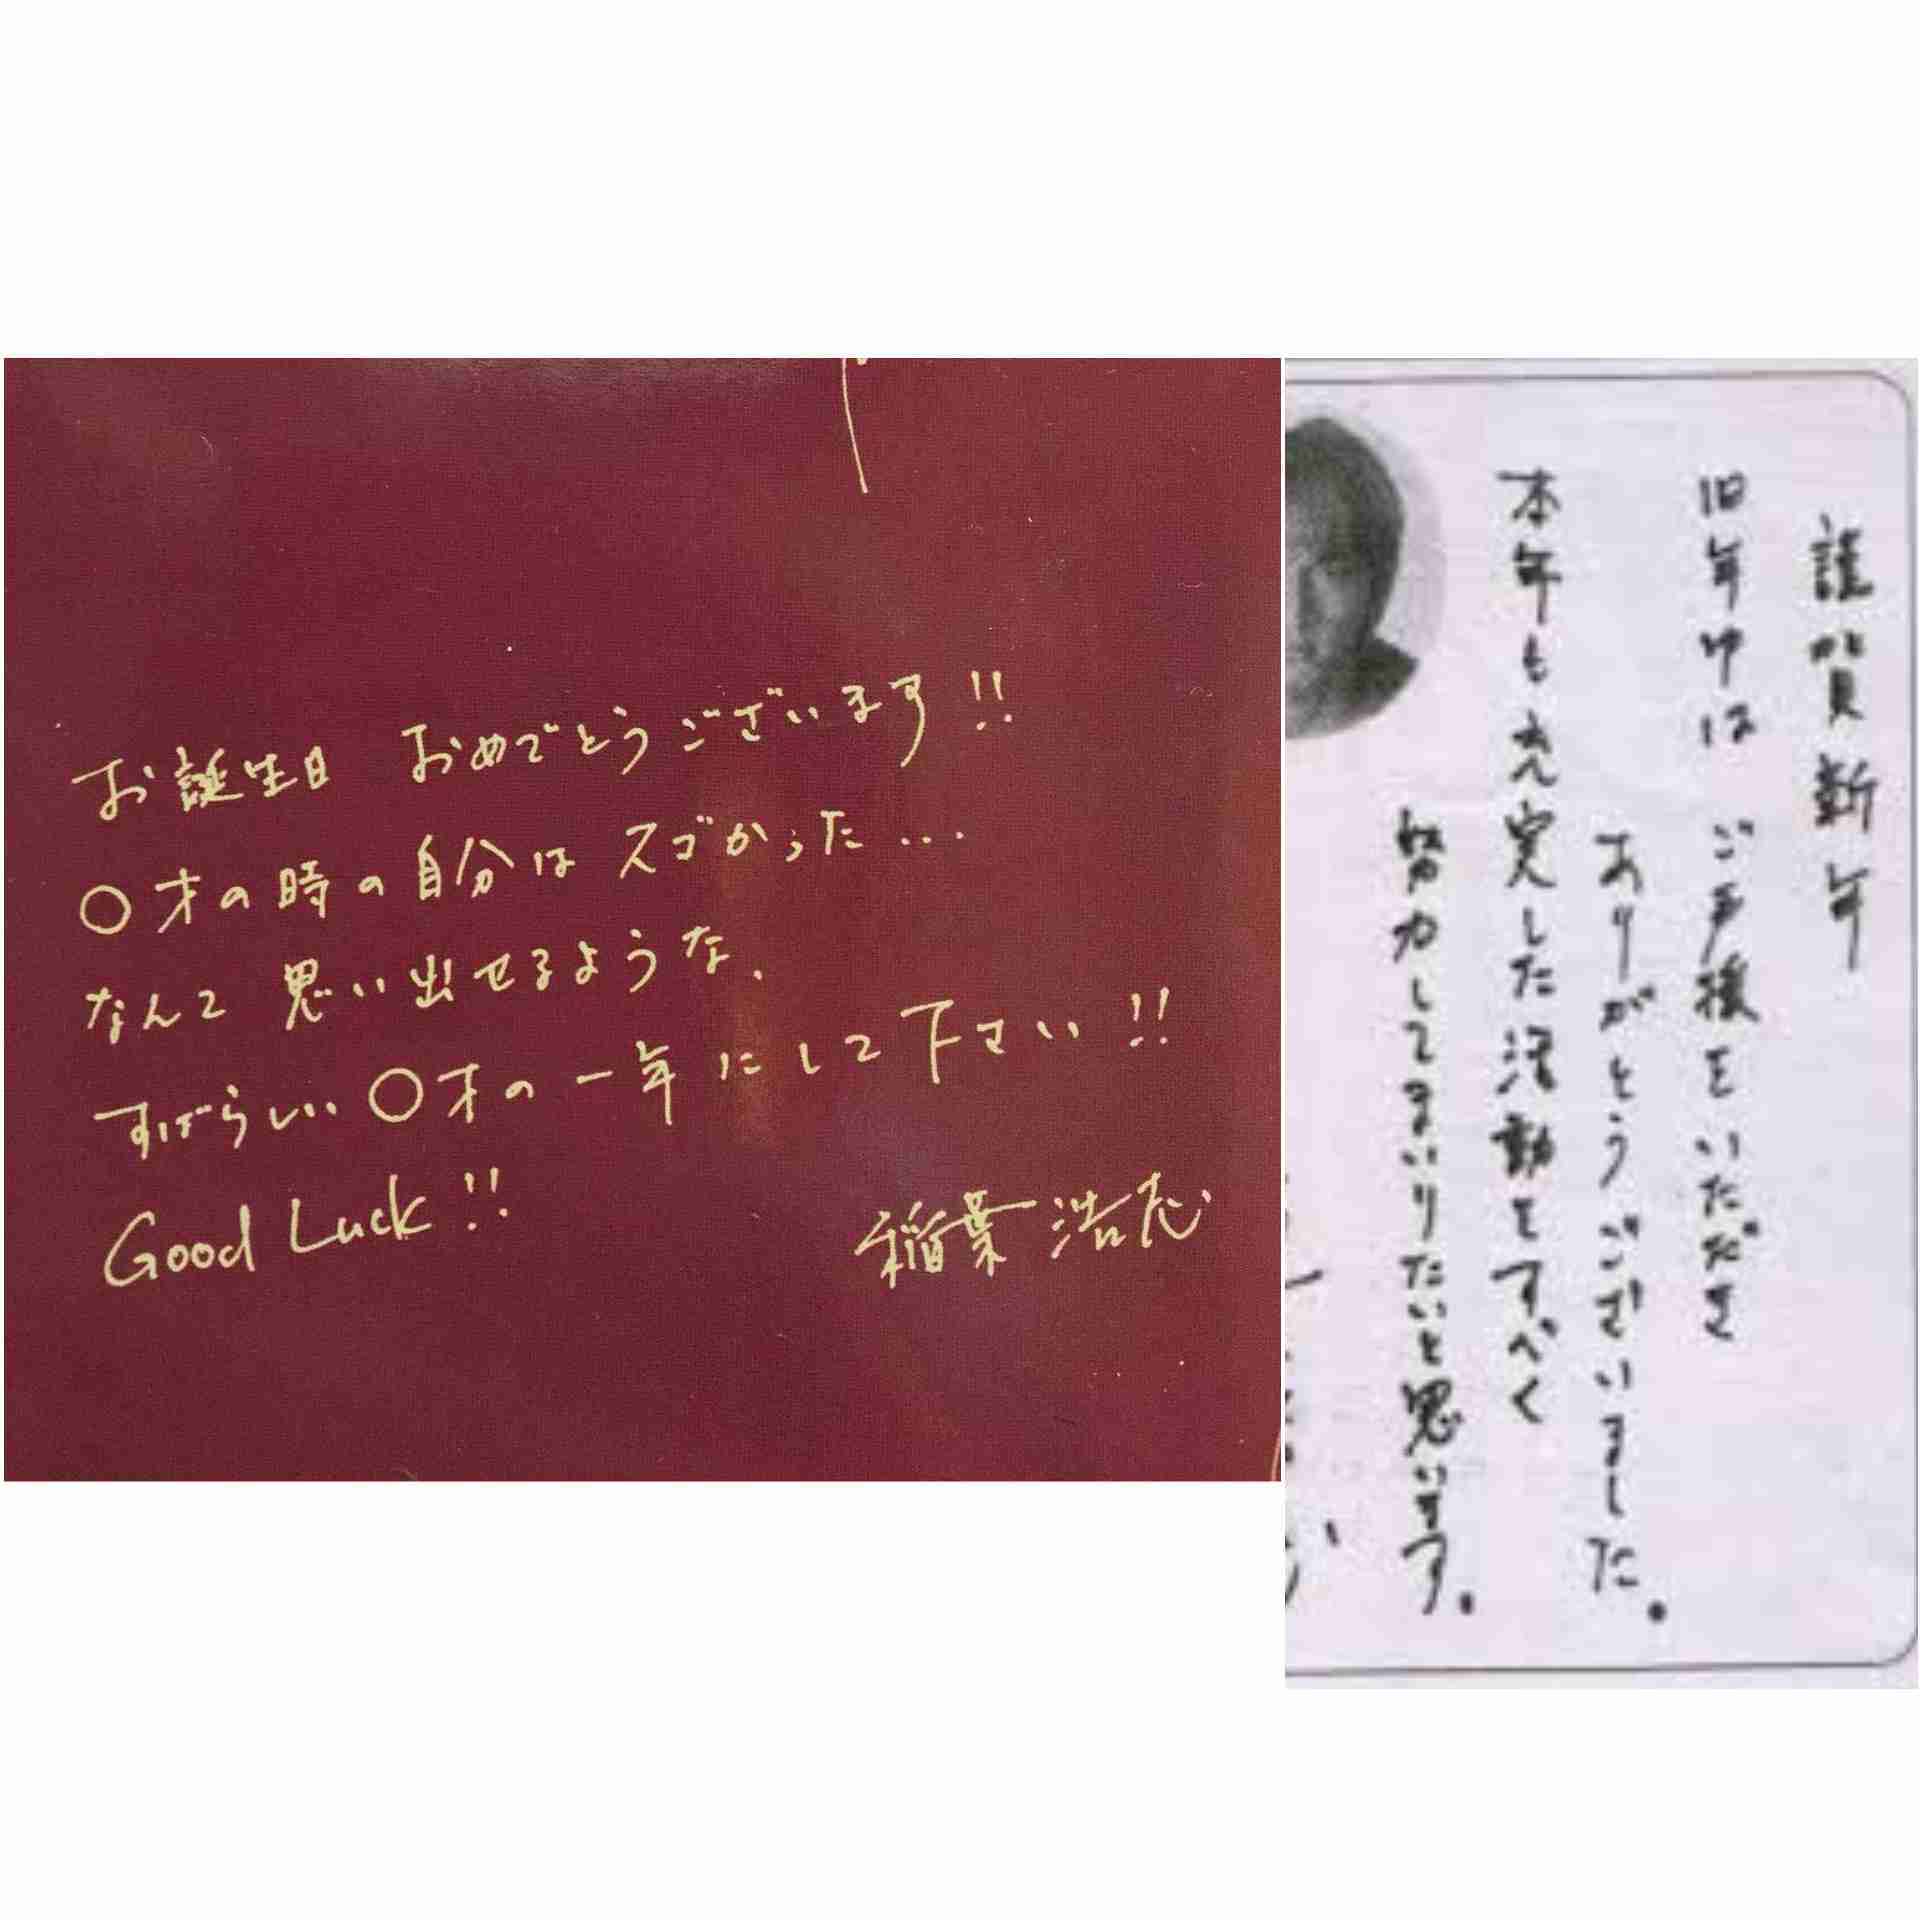 お誕生日 おめでとうございます!!
○才の時の自分はスゴかった...
なんて思い出せるような、
すばらしい○才の一年にして下さい!!
Good Luck!!
稲葉浩志
謹賀新年
旧年中はご声援をいただき
ありがとうございました。
本年も充実した活動をすべく
努力してまいりたいと思います。